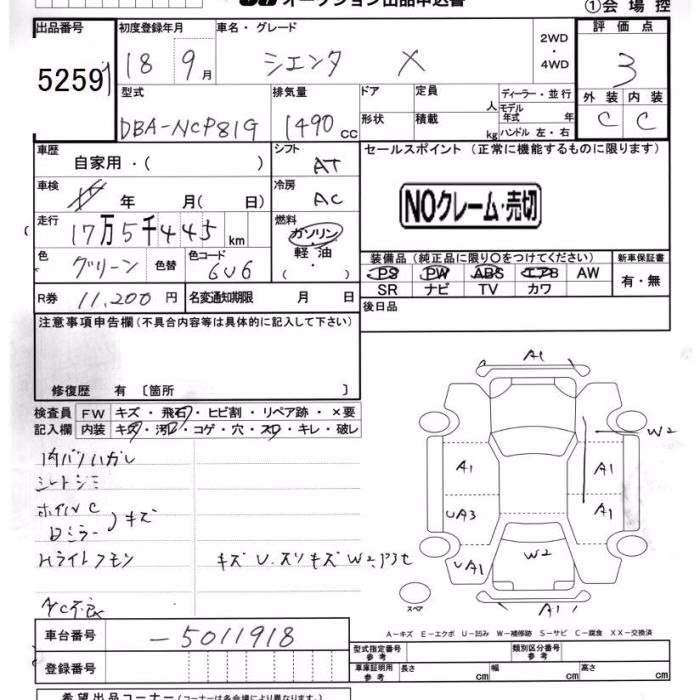 オークション出品申込書
①会場控
出品番号
初度登録年月
車名・グレード
評価点
52591
18 9月
シエンタ X
2WD
・
4WD
3
型式
排気量
ドア
定員
人
ディーラー・並行
外装 内装
DBA-NCP81G
1490cc
形状
積載
kg
モデル年式 年
ハンドル 左・右
C C
車歴
自家用・( )
シフト
AT
セールスポイント (正常に機能するものに限ります)
車検
年 月( 日)
冷房
AC
NOクレーム・売切
走行
17万5千445km
燃料
ガソリン
・
軽油
・
( )
色
グリーン
色替
色コード
6V6
装備品 (純正品に限り○をつけてください)
新車保証書
PS PW ABS エアB AW
SR ナビ TV カワ
有・無
R券 11,200円
名変通知期限 月 日
後日品
注意事項申告欄 (不具合内容等は具体的に記入して下さい)
修復歴 有 〔箇所 〕
検査員 FW キズ・飛石・ヒビ割・リペア跡・×要
記入欄 内装 キズ・汚レ・コゲ・穴・スレ・キレ・破レ
内バリハガレ
シートシミ
ホイルC
Dミラー
キズ
Hライトクモリ
キズ U.スリキズ W2.
A/C不良
A1
W2
A1
A1
UA3
A1
UA1
W2
UA1
A1
スペア
A-キズ E-エクボ U-凹み W-補修跡 S-サビ C-腐食 XX-交換済
車台番号
-5011918
型式指定番号
参考
類別区分番号
参考
登録番号
車庫証明用
参考
長さ cm
幅 cm
高さ cm
希望出品コーナー (コーナーは各会場により異なります)